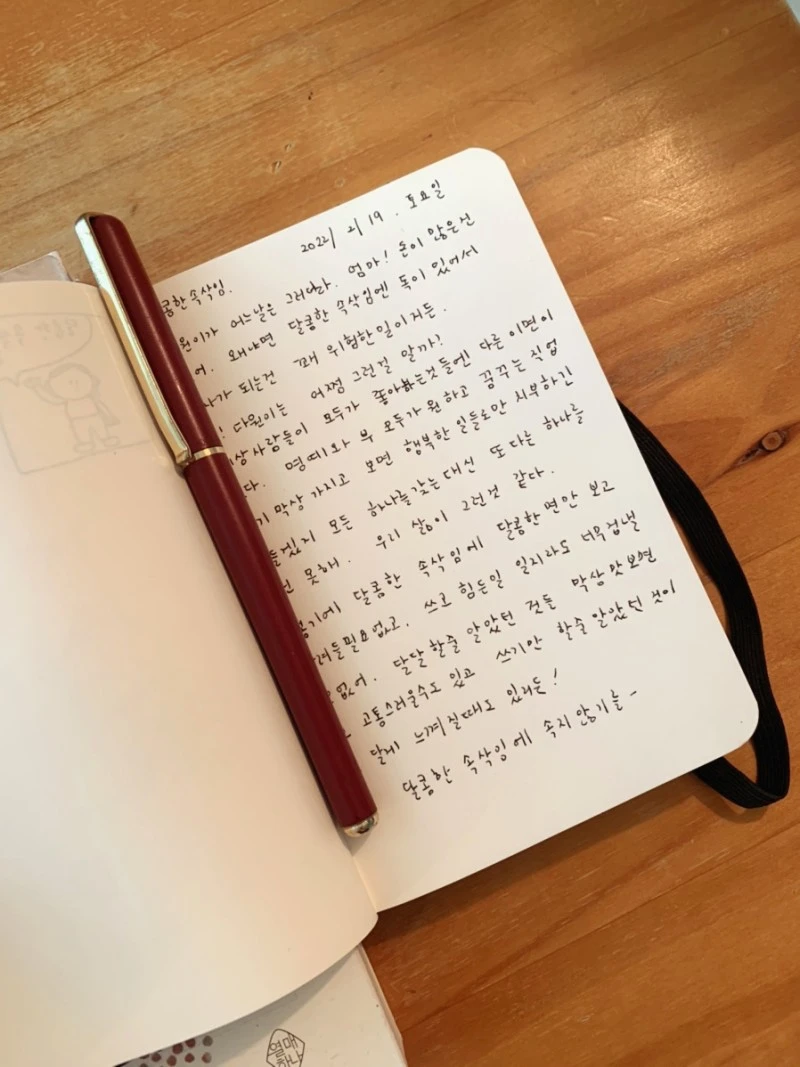 2022/ 2/ 19. 토요일
콤한 속삭임.
원이가 어느날은 그러더라. 엄마! 돈이 많은건
어. 왜냐면 달콤한 속삭임엔 독이 있어서
사가 되는건 꽤 위험한 일이거든.
! 다원이는 어쩜 그런걸 알까?
상사람들이 모두가 좋아하는것들엔 다른 이면이
다. 명예와 부 모두가 원하고 꿈꾸는 직업
기 막상 가지고 보면 행복한 일들로만 치부하긴
들겠지 모든 하나를 갖는대신 또 다른 하나를
못해. 우리 삶이 그런것 같다.
콤기에 달콤한 속삭임에 달콤한 면만 보고
려들필요없고. 쓰고 힘든일 일지라도 너무 겁낼
없어. 달달할줄 알았던 것들 막상 맛보면
고통스러울수도 있고 쓰기만 할줄 알았던 것이
달게 느껴질때도 있거든!
달콤한 속삭임에 속지 않기를-
열매하나